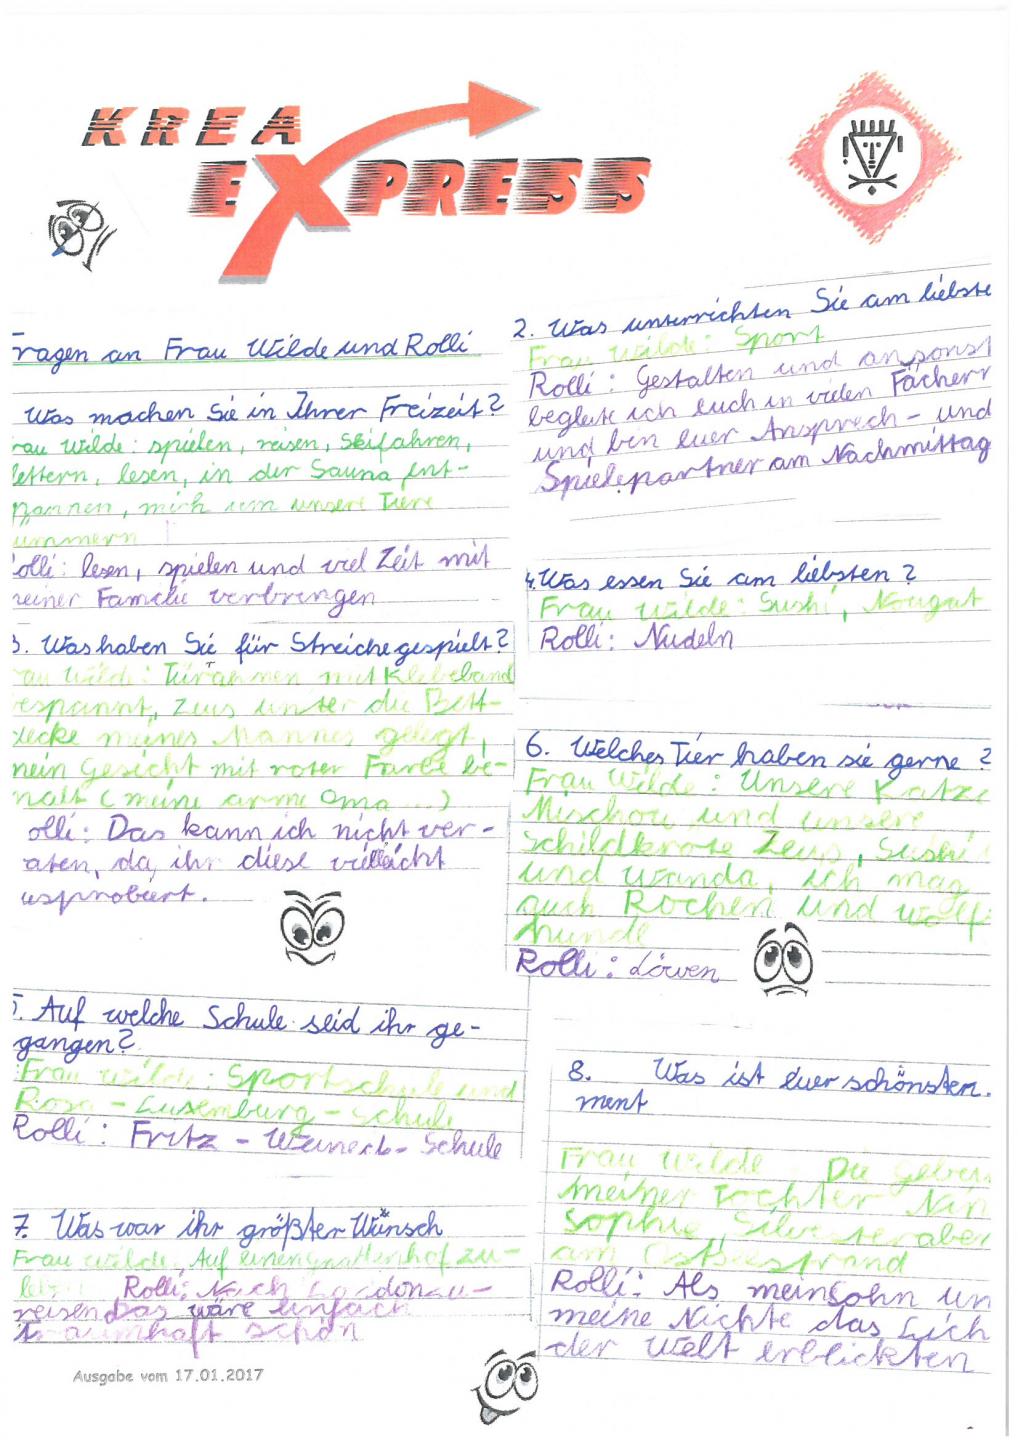 KREA
EXPRESS
ragen an Frau Wilde und Rolli
Was machen Sie in Ihrer Freizeit?
rau Wilde: spielen, reisen, Skifahren,
lettern, lesen, in der Sauna ent-
pannen, mich um unsere Tiere
ümmern
olli: lesen, spielen und viel Zeit mit
einer Familie verbringen
3. Was haben Sie für Streiche gespielt?
au Wilde: Türrahmen mit Klebeband
espannt, Zeus unter die Bett-
decke meines Mannes gelegt,
mein Gesicht mit roter Farbe be-
malt (meine arme Oma ...)
olli: Das kann ich nicht ver-
aten, da, ihr diese vielleicht
usprobiert.
5. Auf welche Schule seid ihr ge-
gangen?
Frau Wilde: Sportschule und
Rosa-Luxemburg-Schule
Rolli: Fritz-Weineck-Schule
7. Was war ihr größter Wunsch
Frau Wilde, Auf einen hof zu-
Rolli: Nach London zu-
reisen Das wäre einfach
traumhaft schön
Ausgabe vom 17.01.2017
2. Was unterrichten Sie am liebste
Frau Wilde: Sport
Rolli: Gestalten und ansonst
begleite ich euch in vielen Fächern
und bin euer Ansprech- und
Spielepartner am Nachmittag
4. Was essen Sie am liebsten?
Frau Wilde: Sushi, Nougat
Rolli: Nudeln
6. Welches Tier haben sie gerne?
Frau Wilde: Unsere Katze
Mischou und unsere
Schildkröte Zeus, Sushi
und Wanda, ich mag
auch Rochen und Wolf-
hunde
Rolli: Löwen
8. Was ist euer schönsten
ment
Frau Wilde Die Gebur
meiner Tochter Nin
Sophie, Silvesteraben
am Ostseestrand
Rolli: Als mein Sohn un
meine Nichte das Lich
der Welt erblickten